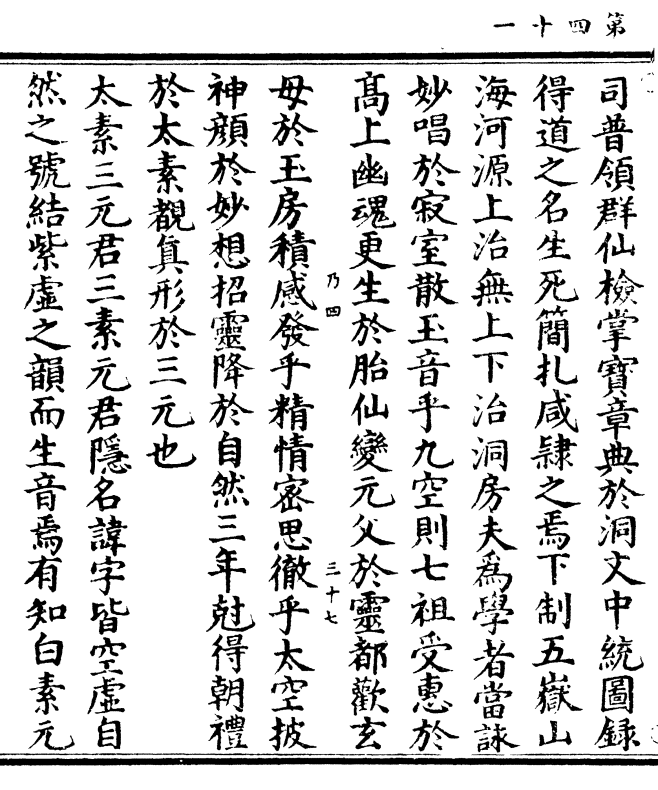 第四十一
司普領群仙檢掌寶章典於洞文中統圖錄
得道之名生死簡扎咸隷之焉下制五嶽山
海河源上治無上下治洞房夫爲學者當詠
妙唱於寂室散玉音乎九空則七祖受惠於
髙上幽魂更生於胎仙變元父於靈都歡玄
乃四
三十七
母於玉房積感發乎精情密思徹乎太空披
神顔於妙想招靈降於自然三年尅得朝禮
於太素覩眞形於三元也
太素三元君三素元君隱名諱字皆空虛自
然之號結紫虛之韻而生音焉有知白素元